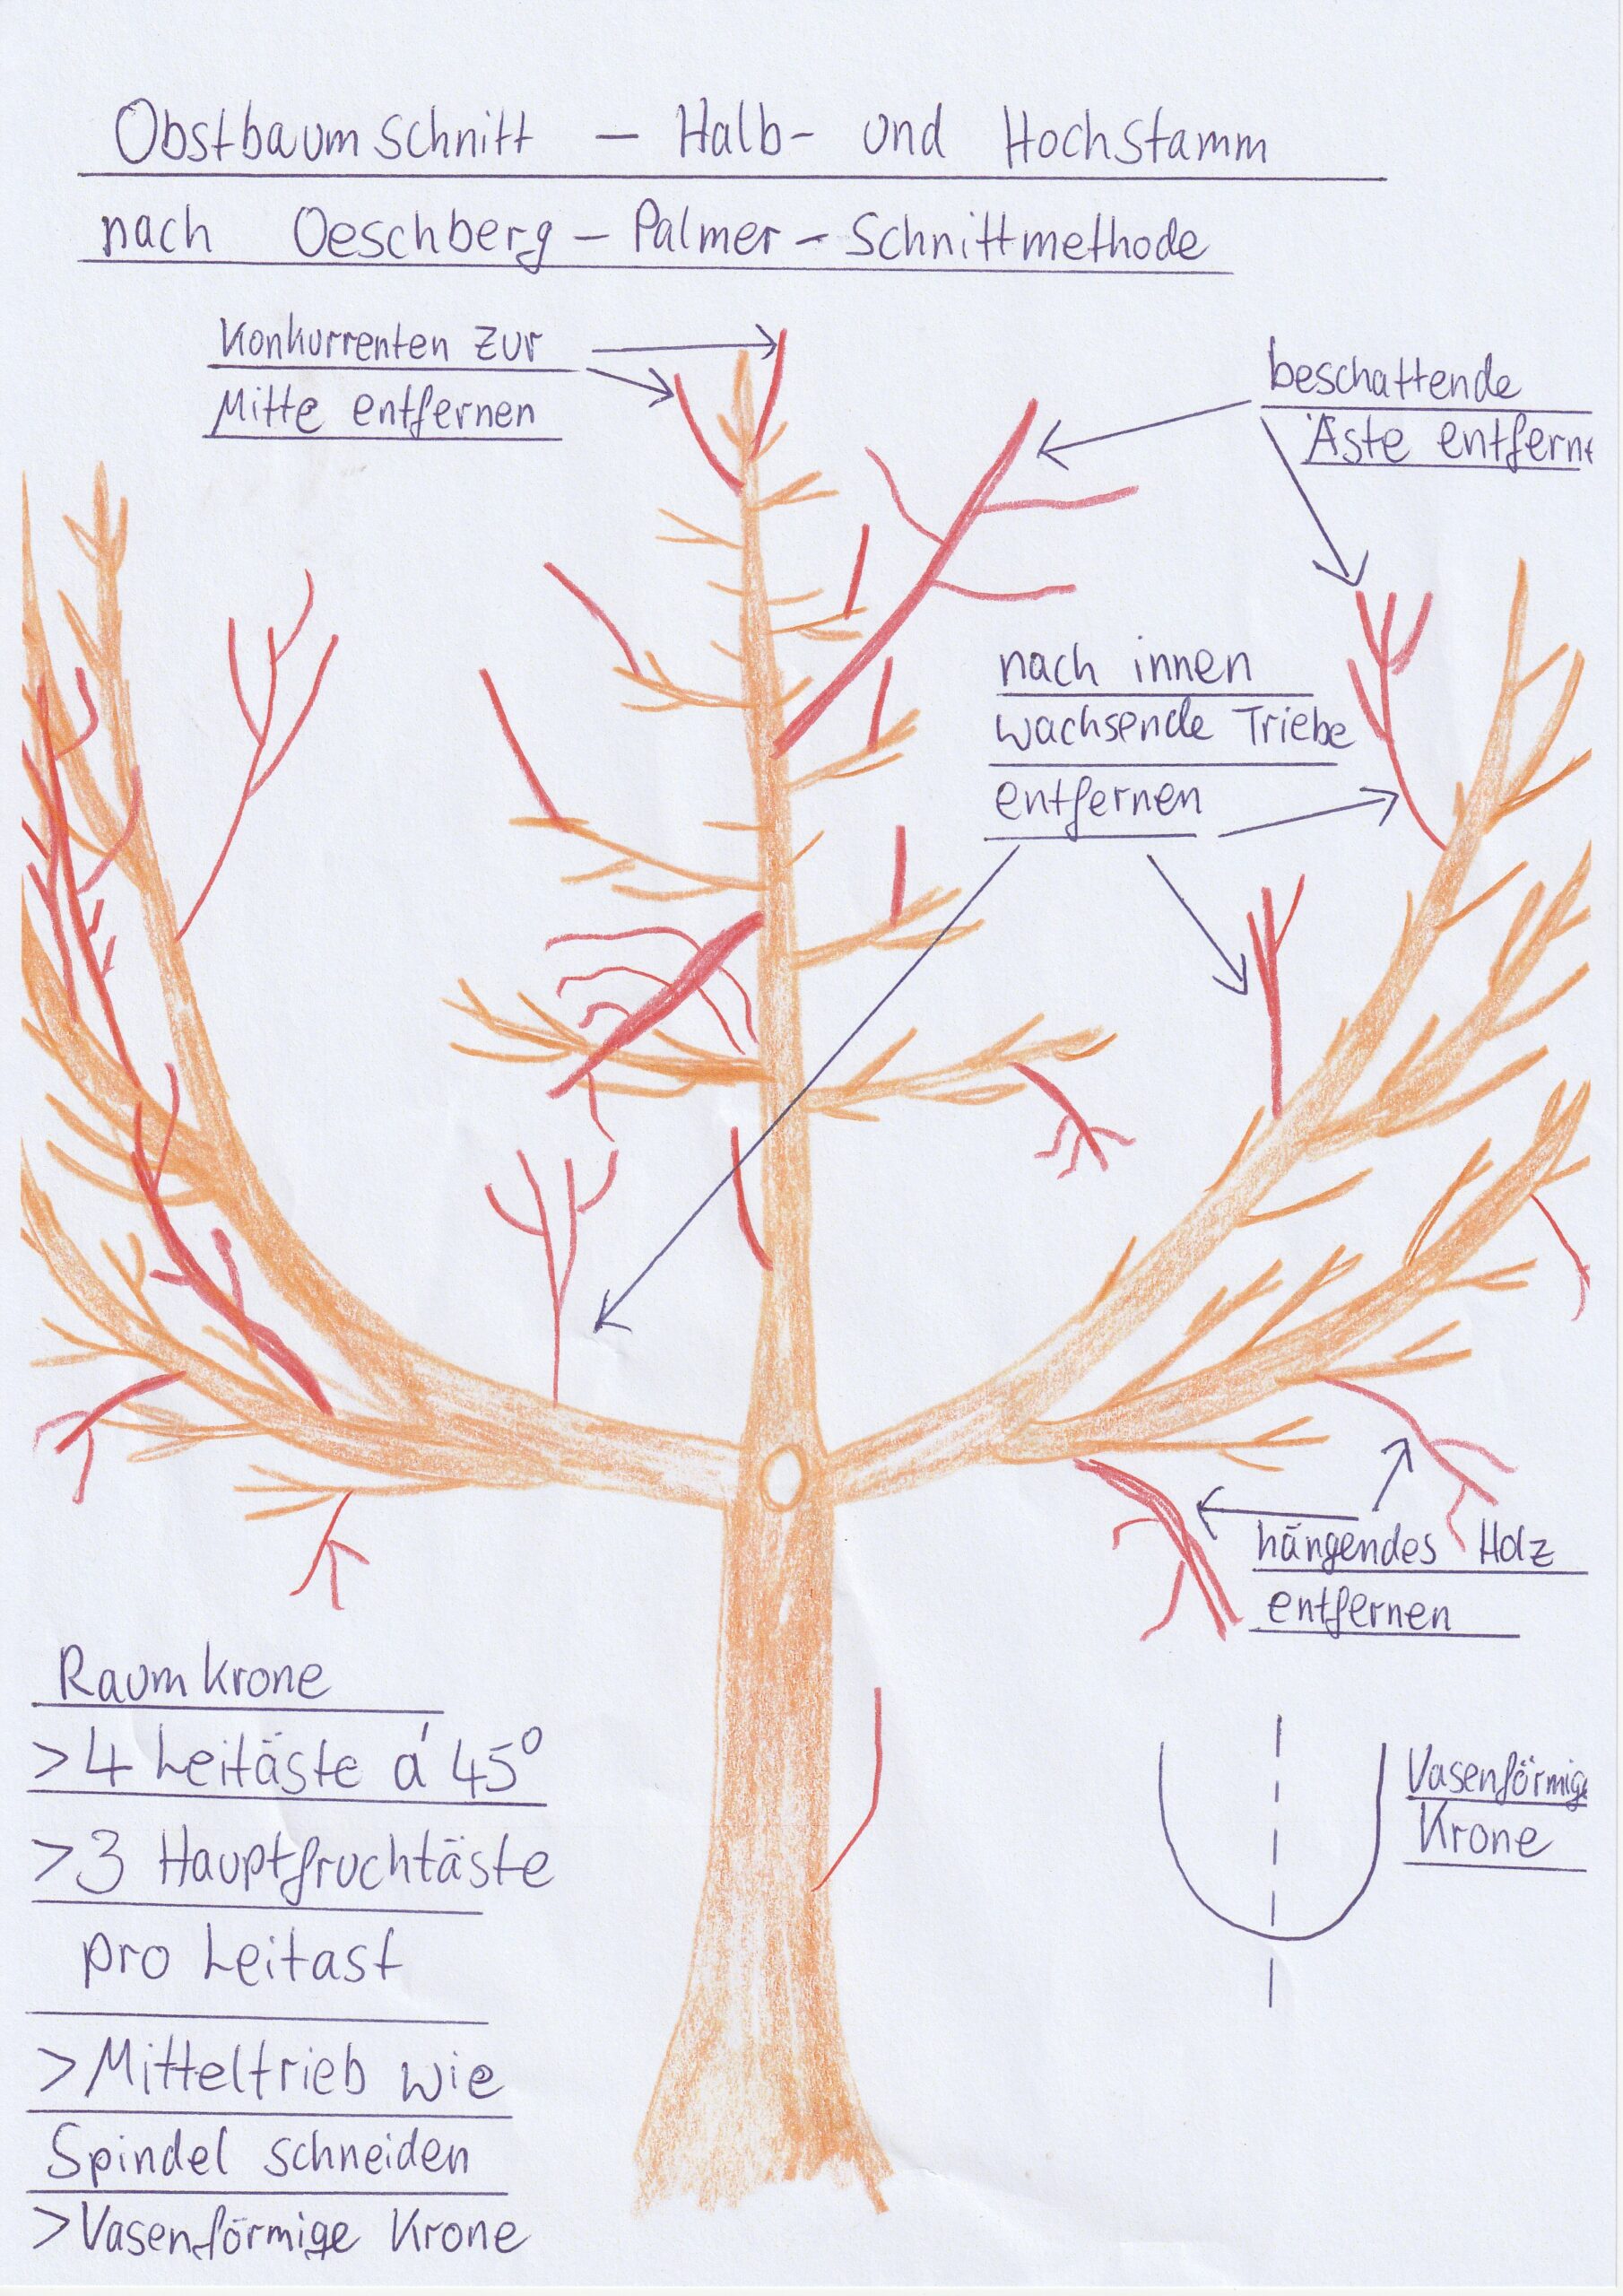 Obstbaumschnitt – Halb- und Hochstamm
nach Oeschberg – Palmer – Schnittmethode
Konkurrenten zur
Mitte entfernen
beschattende
Äste entferne
nach innen
wachsende Triebe
entfernen
hängendes Holz
entfernen
Raumkrone
>4 Leitäste á 45°
>3 Hauptfruchtäste
pro Leitast
>Mitteltrieb wie
Spindel schneiden
>Vasenförmige Krone
Vasenförmige
Krone